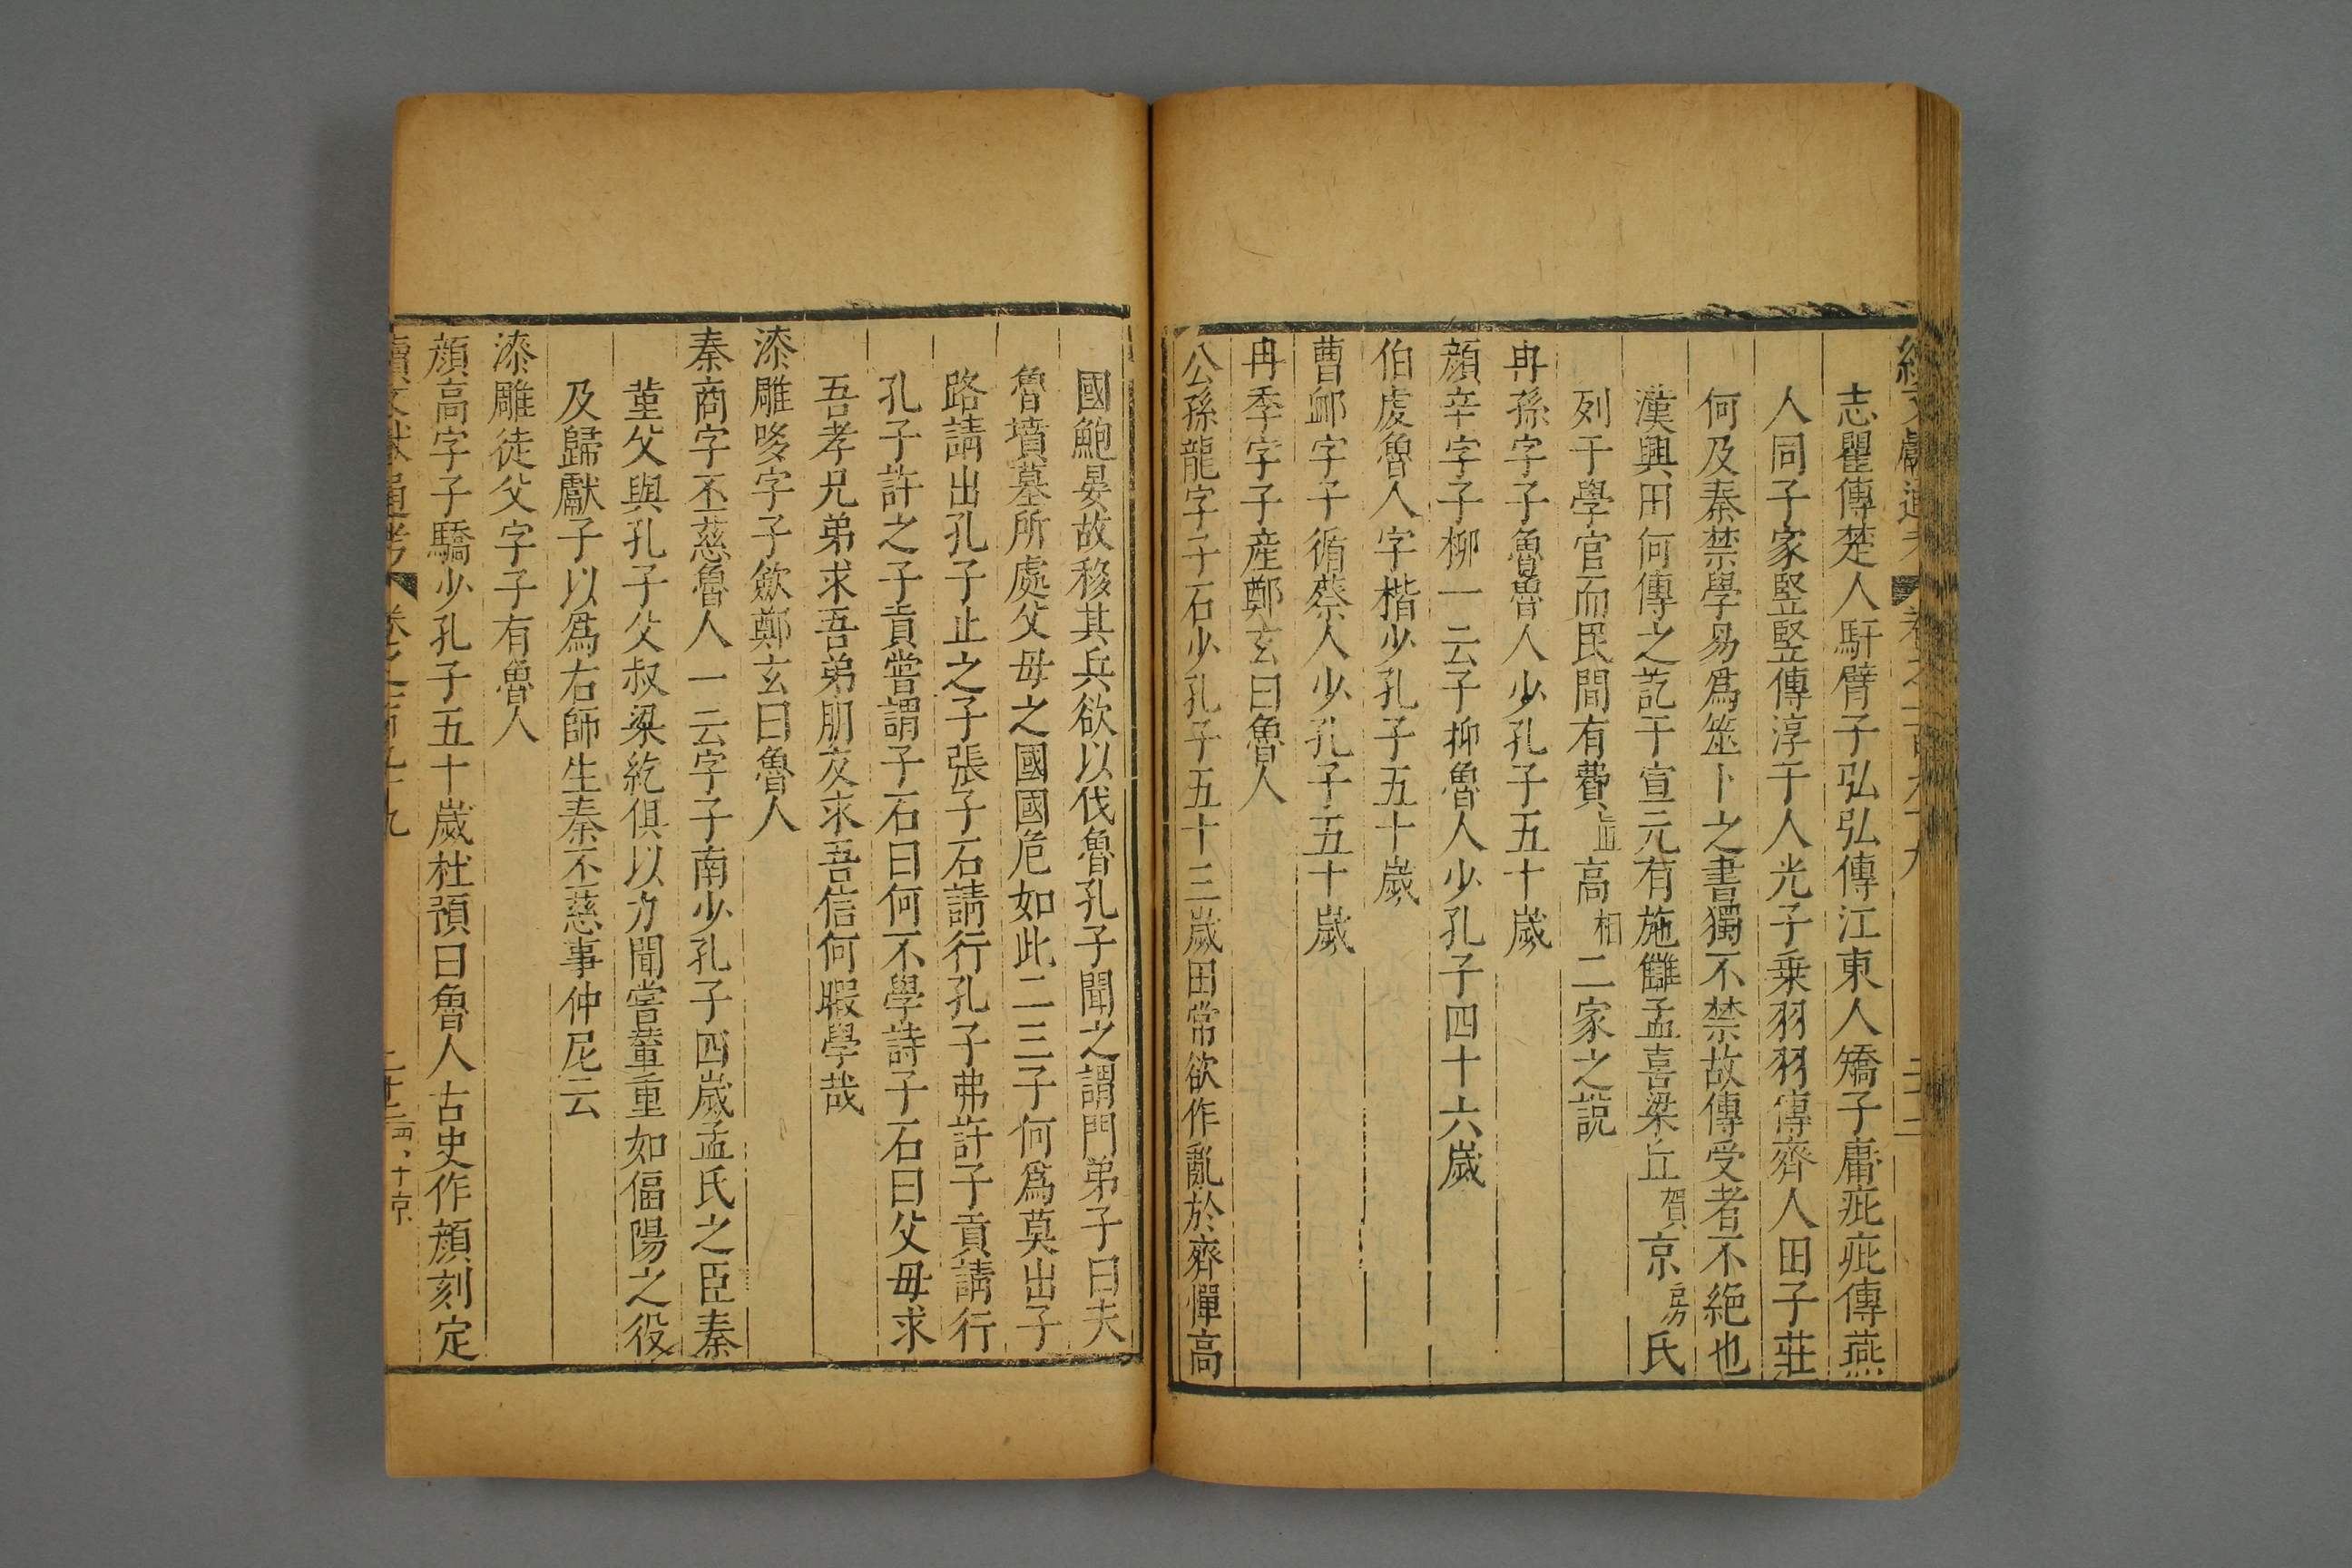 志瞿傳楚人馯臂子弘弘傳江東人矯子庸疵疵傳燕
人同子家竪竪傳淳于人光子乗羽羽傳齊人田子莊
何及秦禁學易爲筮卜之書獨不禁故傳受者不絶也
漢興田何傳之訖于宣元有施讎孟喜梁丘賀京房氏
列于學官而民間有費直高相二家之說
冉孫字子魯魯人少孔子五十歲
顔辛字子柳一云子抑魯人少孔子四十六歲
伯虔魯人字楷少孔子五十歲
曹䘏字子循蔡人少孔子五十歲
冉季字子產鄭玄曰魯人
公孫龍字子石少孔子五十三歲田常欲作亂於齊憚高
國鮑晏故移其兵欲以伐魯孔子聞之謂門弟子曰夫
魯墳墓所處父母之國國危如此二三子何爲莫出子
路請出孔子止之子張子石請行孔子弗許子貢請行
孔子許之子貢嘗謂子石曰何不學詩子石曰父毋求
吾孝兄弟求吾弟朋友求吾信何暇學哉
漆雕哆字子歛鄭玄曰魯人
秦商字丕慈魯人一云字子南少孔子四歲孟氏之臣秦
堇父與孔子父叔梁紇俱以力聞嘗輦重如偪陽之役
及歸獻子以爲右師生秦丕慈事仲尼云
漆雕徒父字子有魯人
顔高字子驕少孔子五十歲杜預曰魯人古史作顔刻定
續文獻通考 卷之一百九十九